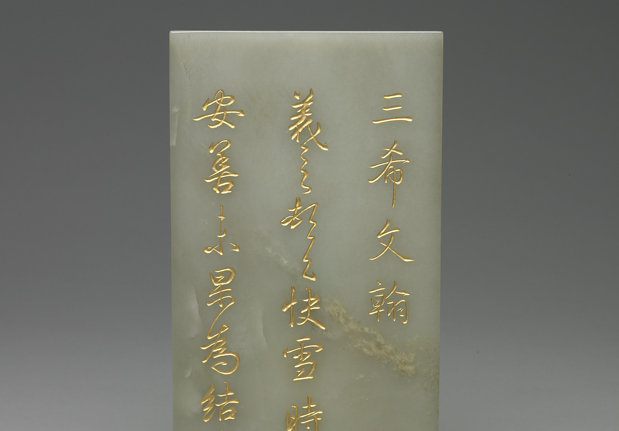 三希文翰
羲之頓首快雪時
安善未果為結